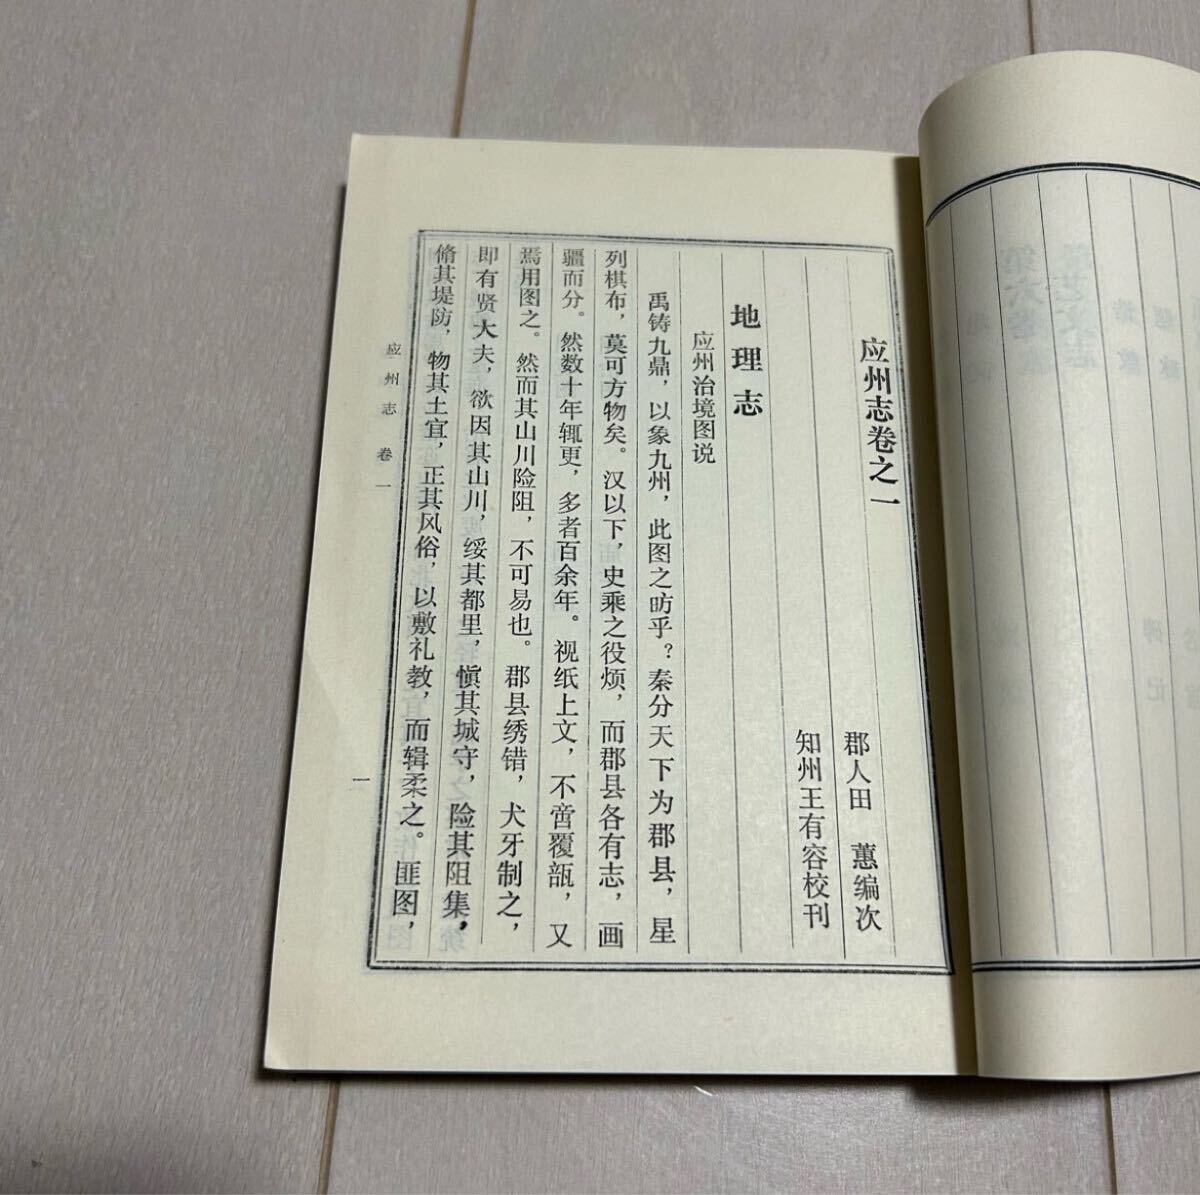 应州志卷之一
郡人田 蕙编次
知州王有容校刊
地理志
应州治境图说
禹铸九鼎，以象九州，此图之昉乎？秦分天下为郡县，星
列棋布，莫可方物矣。汉以下，史乘之役烦，而郡县各有志，画
疆而分。然数十年辄更，多者百余年。视纸上文，不啻覆瓿，又
焉用图之。然而其山川险阻，不可易也。郡县绣错，犬牙制之，
即有贤大夫，欲因其山川，绥其都里，慎其城守，险其阻集，
脩其堤防，物其土宜，正其风俗，以敷礼教，而辑柔之。匪图，
应州志 卷一
一